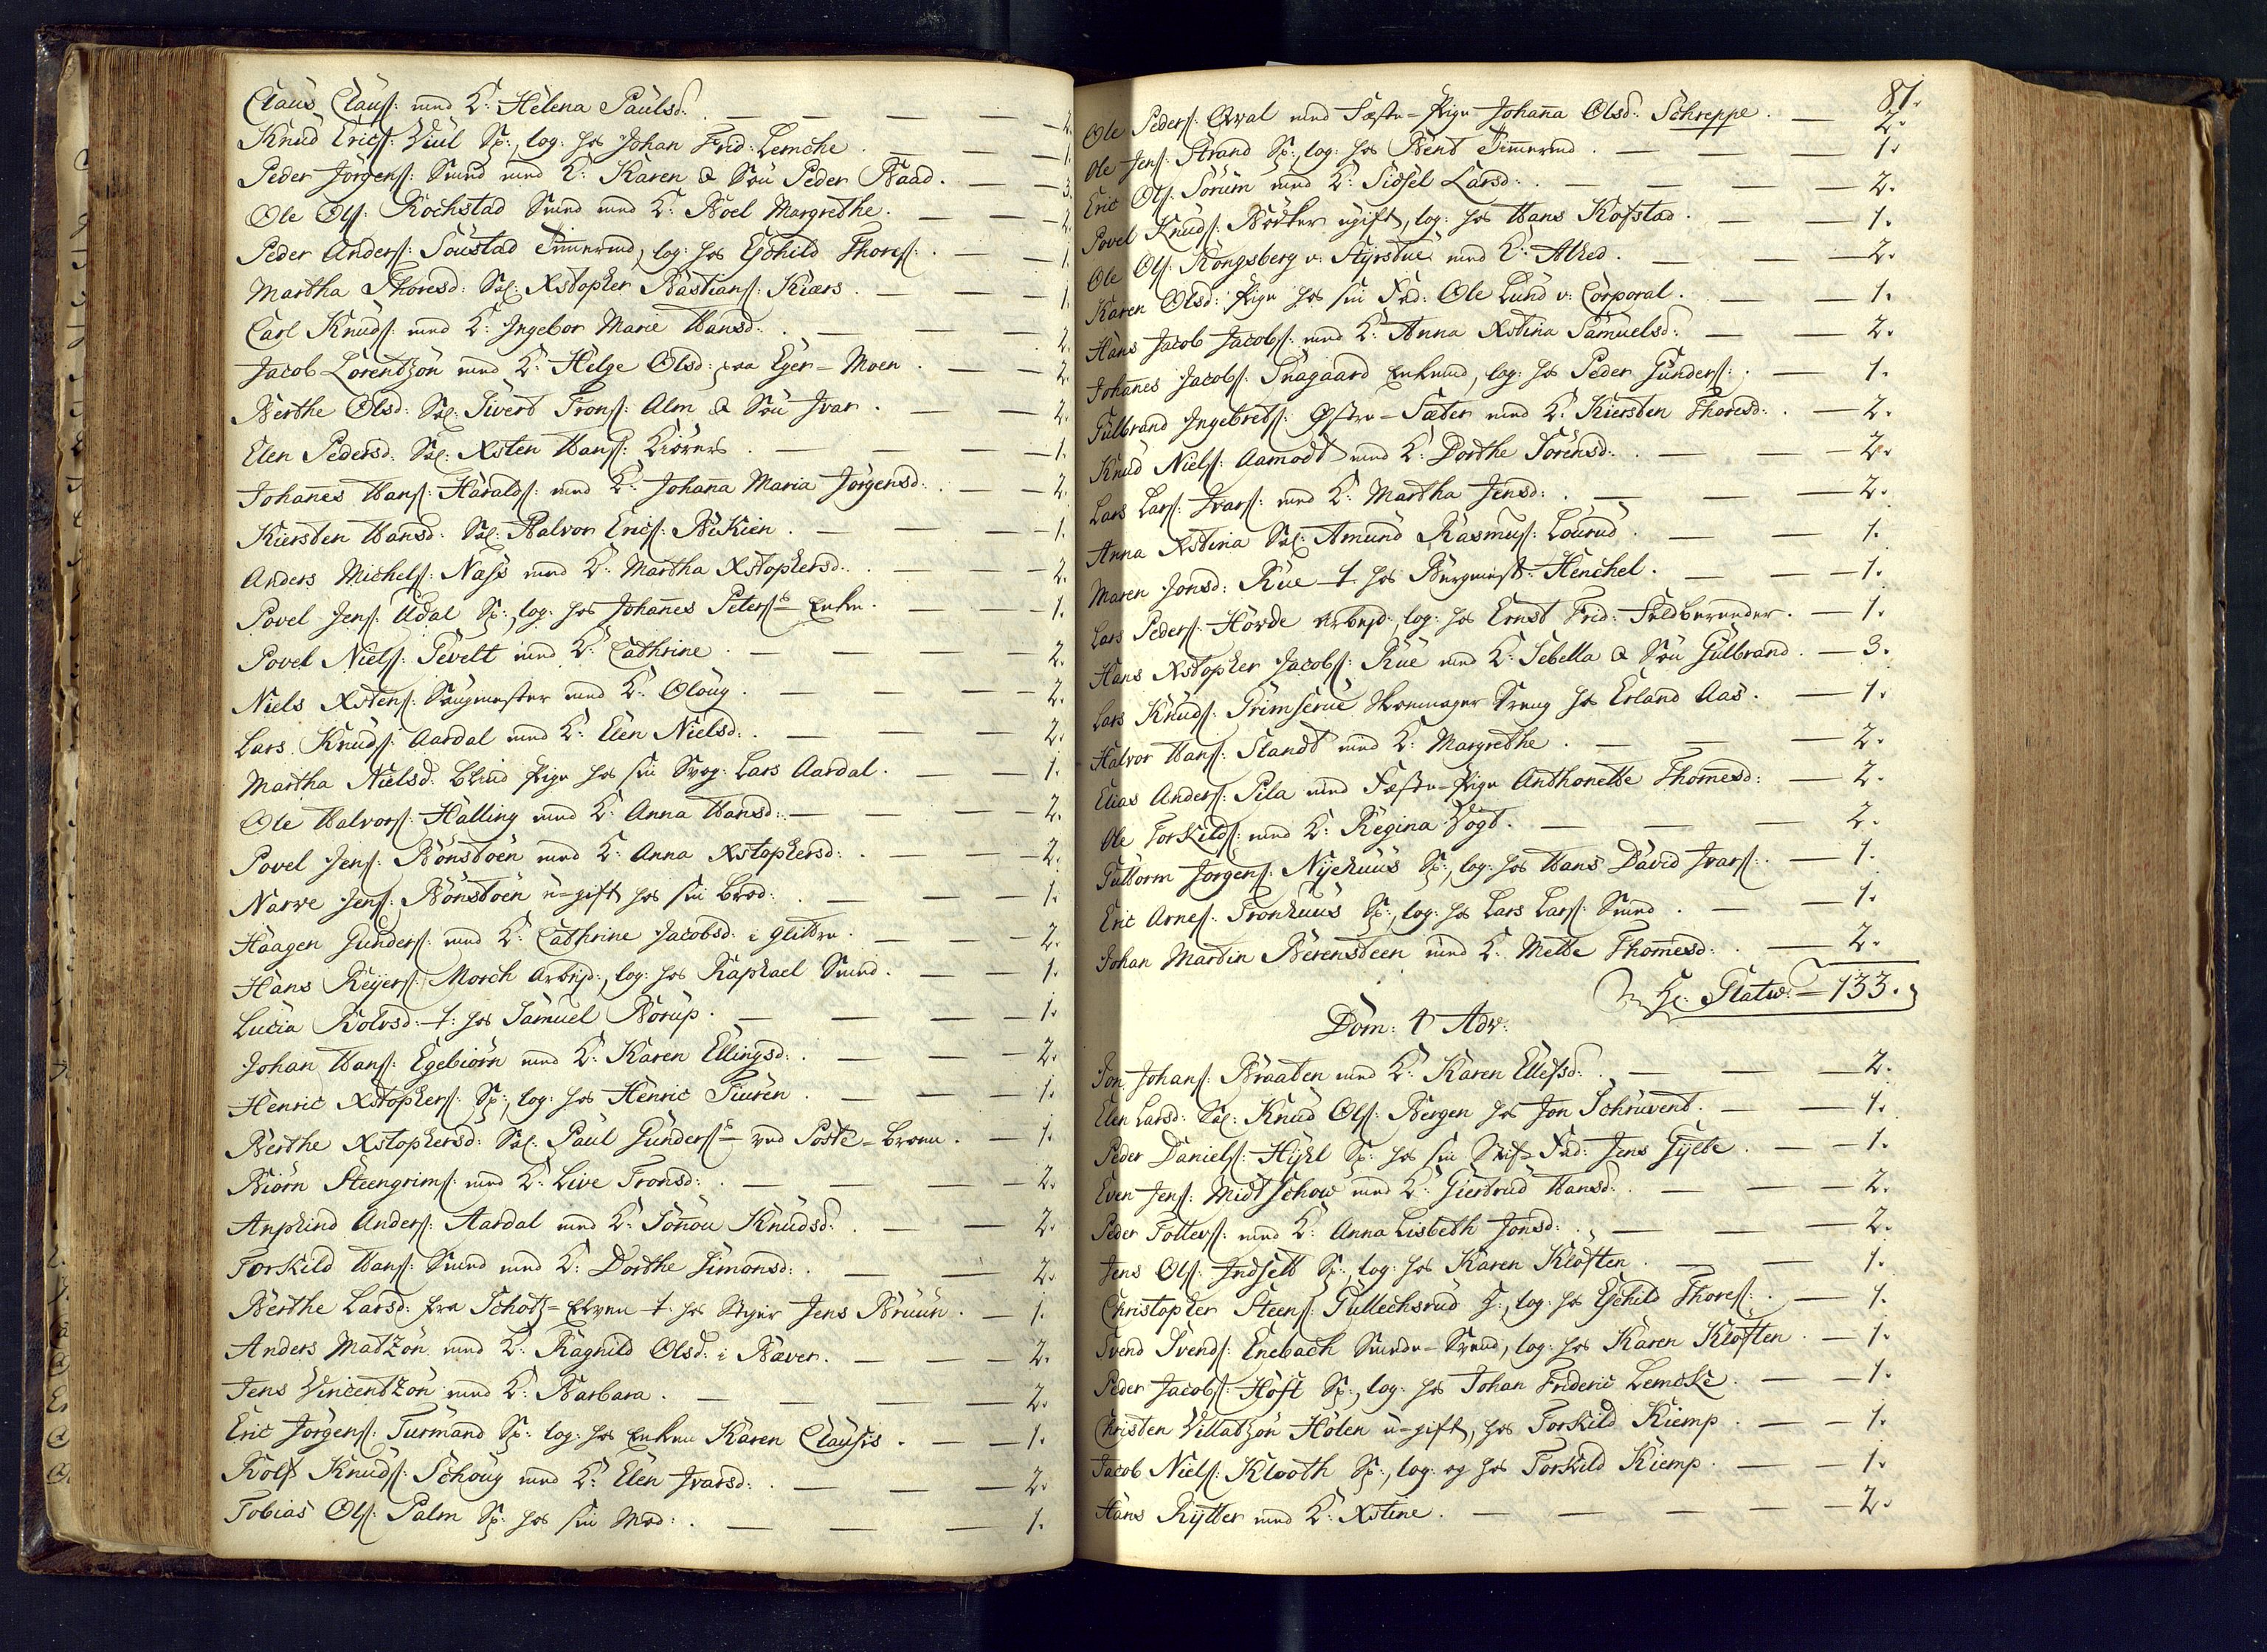 Claus Claus: med K: Helena Paulsd: — 2.
Knud Erics: Viul Sp:, log: hos Johan Frid: Lemche. — 1.
Peder Jörgens: Smed med K: Karen & Sön Peder Baad. — 3.
Ole Ols: Rochstad Smed med K: Boel Margrethe. — 2.
Peder Anders: Soustad Timmermd, log: hos Eschild Thores: — 1.
Martha Thoresd: Sal: Xstopher Bastians: Kiærs. — 1.
Carl Knuds: med K: Ingebor Marie Hansd: — 2.
Jacob Lorentzon med K: Helge Olsd: paa Eger-Moen. — 2.
Berthe Olsd: Sal: Sivert Trons: Alm & Sön Ivar. — 2.
Elen Pedersd: Sal: Xsten Hans: Kiörers. — 1.
Johannes Hans: Haralds: med K: Johanna Maria Jörgensd: — 2.
Kiersten Hansd: Sal: Halvor Erics: Bekien. — 1.
Anders Michels: Næss med K: Martha Xstophersd: — 2.
Povel Jens: Udal Sp:, log: hos Johannes Peters: Enke. — 1.
Povel Niels: Tevelt med K: Cathrine. — 2.
Niels Xstens: Saugmester med K: Oloug. — 2.
Lars Knuds: Aardal med K: Elen Nielsd: — 2.
Martha Nielsd: blind Pige hos sin Svog: Lars Aardal. — 1.
Ole Halvors: Halling med K: Anna Hansd: — 2.
Povel Jens: Bönstöen med K: Anna Xstophersd: — 2.
Narve Jens: Bönstöen u-gift hos sin Brod: — 1.
Haagen Gunders: med K: Cathrine Jacobsd: i Glittre. — 2.
Hans Reyers: Morch Arbejd:, log: hos Raphael Smed. — 1.
Lucia Rolvsd: t: hos Samuel Borup. — 1.
Johan Hans: Egebiörn med K: Karen Ellingsd: — 2.
Henric Xstophers: Sp:, log: hos Henric Tiuren. — 1.
Berthe Xstophersd: Sal: Paul Gunders: ved Poste-Broen. — 1.
Biörn Steengrims: med K: Live Tronsd: — 2.
Anphind Anders: Aardal med K: Tönnou Knudsd: — 2.
Torkild Hans: Smed med K: Dorthe Simonsd: — 2.
Berthe Larsd: fra Schotz-Elven t. hos Styer Jens Bruun. — 1.
Anders Madzön med K: Ragnild Olsd: i Bæver. — 2.
Jens Vincentzön med K: Barbara. — 2.
Eric Jörgens: Turmand Sp: log: hos Enken Karen Clausis. — 1.
Rolf Knuds: Schoug med K: Elen Ivarsd: — 2.
Tobias Ols: Palm Sp: hos sin Mod: — 1.
81.
Ole Peders: Qval med Fæste-Pige Johanna Olsd: Schreppe. — 2.
Ole Jens: Strand Sp:, log: hos Bent Timmermd. — 1.
Eric Ols: Sörum med K: Sidsel Larsd: — 2.
Povel Knuds: Bödker ugift, log: hos Hans Kofstad. — 1.
Ole Ols: Kongsberg v: Styrstue med K: Alhed. — 2.
Karen Olsd: Pige hos sin Fad: Ole Lund v: Corporal. — 1.
Hans Jacob Jacobs: med K: Anna Xstina Samuelsd: — 2.
Johannes Jacobs: Snagaard Enkemd, log: hos Peder Gunders: — 1.
Gulbrand Ingebrets: Östre-Sæter med K: Kiersten Thoresd: — 2.
Knud Niels: Aamodt med K: Dorthe Sörensd: — 2.
Lars Lars: Ivars: med K: Martha Jensd: — 2.
Anna Xstina Sal: Amund Rasmus: Lourud. — 1.
Maren Jonsd: Rue t. hos Bergmest: Henchel. — 1.
Lars Peders: Hörde Arbejd:, log: hos Ernst Frid: Feldbereeder. — 1.
Hans Xstopher Jacobs: Rue med K: Sebella & Sön Gulbrand. — 3.
Lars Knuds: Grimserue Skomager Svend hos Erland Aas. — 1.
Halvor Hans: Slandt med K: Margrethe. — 2.
Elias Anders: Pila med Fæste-Pige Anthonette Thomesd: — 2.
Ole Torkilds: med K: Regina Vogt. — 2.
Guttorm Jörgens: Nyehuus Sp:, log: hos Hans David Ivars: — 1.
Eric Arnes: Tronhuus Sp:, log: hos Lars Lars: Smed. — 1.
Johan Martin Berensteen med K: Mette Thomesd: — 2.
Hr: Flatw: — 133.
Dom: 4 Adv:
Jon Johans: Braaten med K: Karen Ellefsd: — 2.
Elen Larsd: Sal: Knud Ols: Bergen hos Jon Schruvend. — 1.
Peder Daniels: Hyhl Sp: hos sin Stif-Fad: Jens Gylte. — 1.
Even Jens: Midtschow med K: Giertrud Hansd: — 2.
Peder Tollevs: med K: Anna Lisbeth Jonsd: — 2.
Jens Ols: Indsett Sp:, log: hos Karen Klöften. — 1.
Christopher Steens: Gullechsrud G:, log: hos Eschild Thores: — 1.
Svend Svends: Enebach Smede-Svend, log: hos Karen Klöften. — 1.
Peder Jacobs: Höft Sp:, log: hos Johan Frideric Lemcke. — 1.
Christen Villatzön Holen u-gift, hos Torkild Kiemp. — 1.
Jacob Niels: Klooth Sp:, log: og hos Torkild Kiemp. — 1.
Hans Rytter med K: Xstine. — 2.